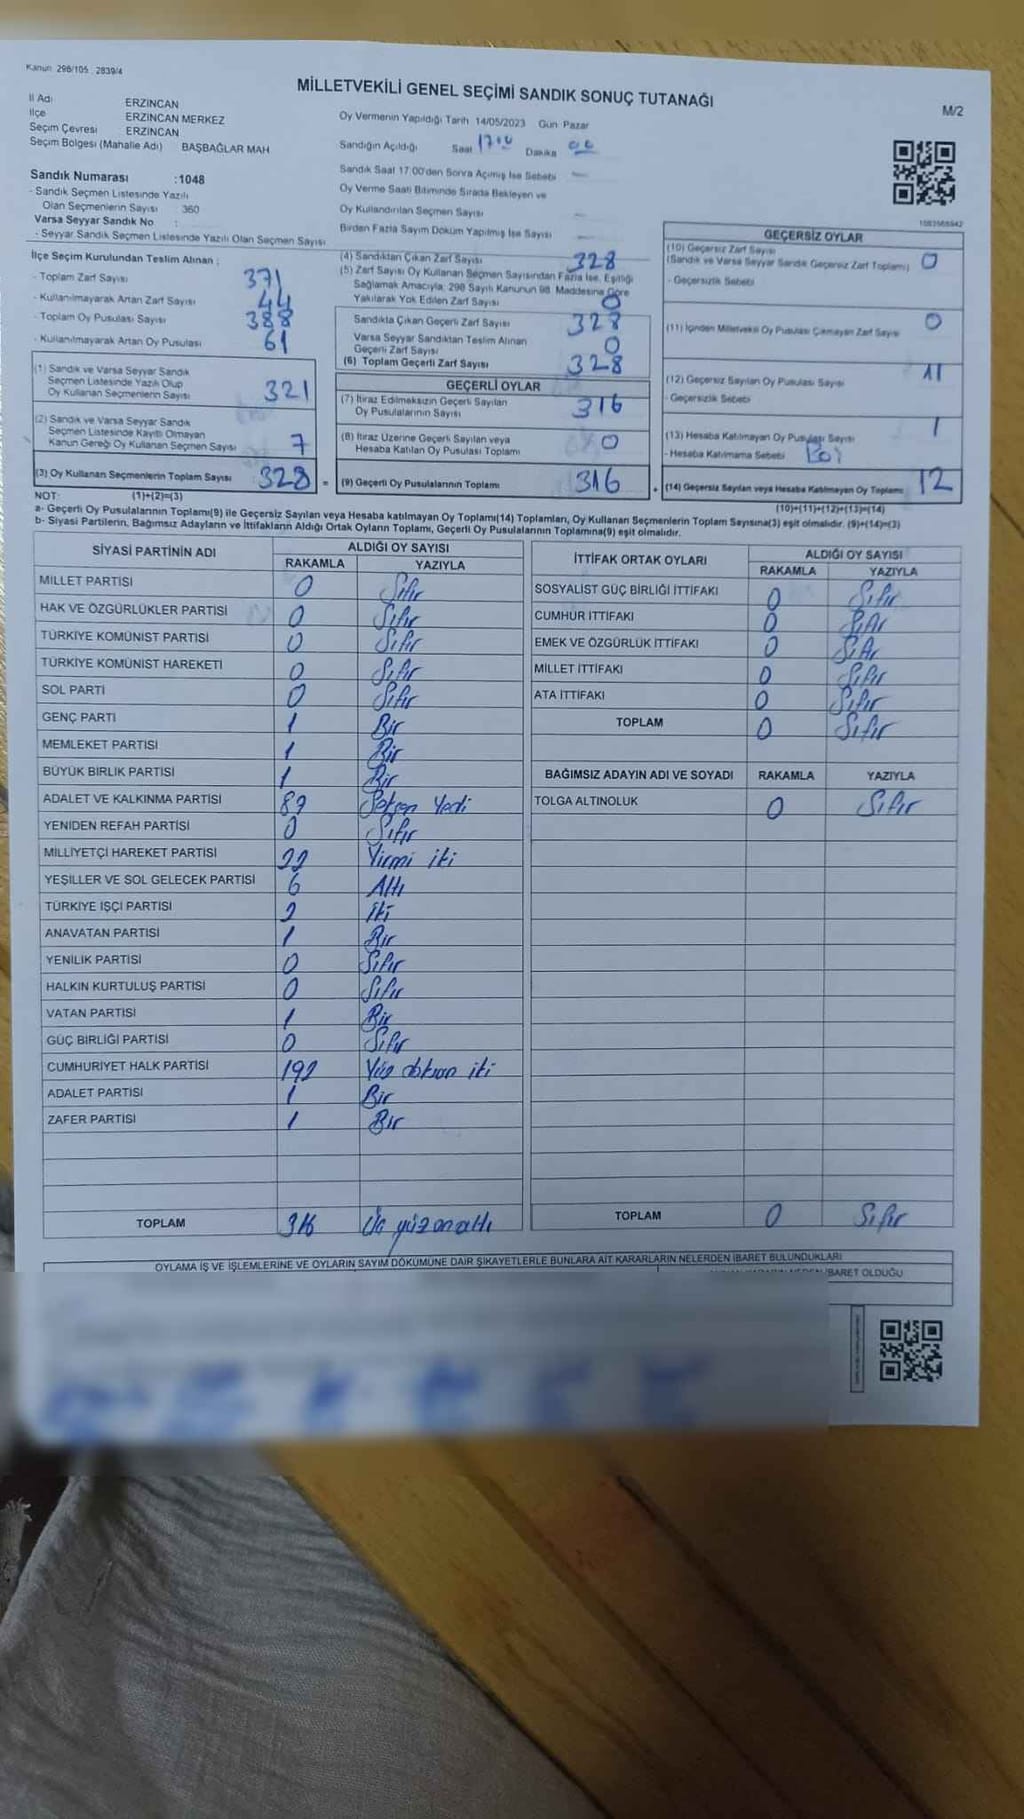 Kanun: 298/105 : 2839/4
MİLLETVEKİLİ GENEL SEÇİMİ SANDIK SONUÇ TUTANAĞI
M/2
İl Adı ERZİNCAN
İlçe ERZİNCAN MERKEZ
Seçim Çevresi ERZİNCAN
Seçim Bölgesi (Mahalle Adı) BAŞBAĞLAR MAH
Sandık Numarası :1048
- Sandık Seçmen Listesinde Yazılı
Olan Seçmenlerin Sayısı : 360
Varsa Seyyar Sandık No :
- Seyyar Sandık Seçmen Listesinde Yazılı Olan Seçmen Sayısı
Oy Vermenin Yapıldığı Tarih 14/05/2023 Gün Pazar
Sandığın Açıldığı Saat 17:00 Dakika 00
Sandık Saat 17:00'den Sonra Açılmış İse Sebebi —
Oy Verme Saati Bitiminde Sırada Bekleyen ve
Oy Kullandırılan Seçmen Sayısı —
Birden Fazla Sayım Döküm Yapılmış İse Sayısı —
İlçe Seçim Kurulundan Teslim Alınan ;
- Toplam Zarf Sayısı 371
- Kullanılmayarak Artan Zarf Sayısı 44
- Toplam Oy Pusulası Sayısı 388
- Kullanılmayarak Artan Oy Pusulası 61
(1) Sandık ve Varsa Seyyar Sandık
Seçmen Listesinde Yazılı Olup
Oy Kullanan Seçmenlerin Sayısı 321
(2) Sandık ve Varsa Seyyar Sandık
Seçmen Listesinde Kayıtlı Olmayan
Kanun Gereği Oy Kullanan Seçmen Sayısı 7
(3) Oy Kullanan Seçmenlerin Toplam Sayısı 328 =
(4) Sandıktan Çıkan Zarf Sayısı 328
(5) Zarf Sayısı Oy Kullanan Seçmen Sayısından Fazla İse, Eşitliği
Sağlamak Amacıyla; 298 Sayılı Kanunun 98. Maddesine Göre
Yakılarak Yok Edilen Zarf Sayısı 0
Sandıkta Çıkan Geçerli Zarf Sayısı 328
Varsa Seyyar Sandıktan Teslim Alınan
Geçerli Zarf Sayısı 0
(6) Toplam Geçerli Zarf Sayısı 328
GEÇERLİ OYLAR
(7) İtiraz Edilmeksizin Geçerli Sayılan
Oy Pusulalarının Sayısı 316
(8) İtiraz Üzerine Geçerli Sayılan veya
Hesaba Katılan Oy Pusulası Toplamı 0
(9) Geçerli Oy Pusulalarının Toplamı 316 +
1083568942
GEÇERSİZ OYLAR
(10) Geçersiz Zarf Sayısı
(Sandık ve Varsa Seyyar Sandık Geçersiz Zarf Toplamı) 0
- Geçersizlik Sebebi
(11) İçinden Milletvekili Oy Pusulası Çıkmayan Zarf Sayısı 0
(12) Geçersiz Sayılan Oy Pusulası Sayısı 11
- Geçersizlik Sebebi
(13) Hesaba Katılmayan Oy Pusulası Sayısı 1
- Hesaba Katılmama Sebebi Boş
(14) Geçersiz Sayılan veya Hesaba Katılmayan Oy Toplamı 12
(10)+(11)+(12)+(13)=(14)
NOT: (1)+(2)=(3)
a- Geçerli Oy Pusulalarının Toplamı(9) ile Geçersiz Sayılan veya Hesaba katılmayan Oy Toplamı(14) Toplamları, Oy Kullanan Seçmenlerin Toplam Sayısına(3) eşit olmalıdır. (9)+(14)=(3)
b- Siyasi Partilerin, Bağımsız Adayların ve İttifakların Aldığı Ortak Oyların Toplamı, Geçerli Oy Pusulalarının Toplamına(9) eşit olmalıdır.
SİYASİ PARTİNİN ADI ALDIĞI OY SAYISI
RAKAMLA YAZIYLA
MİLLET PARTİSİ 0 Sıfır
HAK VE ÖZGÜRLÜKLER PARTİSİ 0 Sıfır
TÜRKİYE KOMÜNİST PARTİSİ 0 Sıfır
TÜRKİYE KOMÜNİST HAREKETİ 0 Sıfır
SOL PARTİ 0 Sıfır
GENÇ PARTİ 1 Bir
MEMLEKET PARTİSİ 1 Bir
BÜYÜK BİRLİK PARTİSİ 1 Bir
ADALET VE KALKINMA PARTİSİ 87 Seksen Yedi
YENİDEN REFAH PARTİSİ 0 Sıfır
MİLLİYETÇİ HAREKET PARTİSİ 22 Yirmi iki
YEŞİLLER VE SOL GELECEK PARTİSİ 6 Altı
TÜRKİYE İŞÇİ PARTİSİ 2 İki
ANAVATAN PARTİSİ 1 Bir
YENİLİK PARTİSİ 0 Sıfır
HALKIN KURTULUŞ PARTİSİ 0 Sıfır
VATAN PARTİSİ 1 Bir
GÜÇ BİRLİĞİ PARTİSİ 0 Sıfır
CUMHURİYET HALK PARTİSİ 192 Yüz doksan iki
ADALET PARTİSİ 1 Bir
ZAFER PARTİSİ 1 Bir
TOPLAM 316 Üç yüz on altı
İTTİFAK ORTAK OYLARI ALDIĞI OY SAYISI
RAKAMLA YAZIYLA
SOSYALİST GÜÇ BİRLİĞİ İTTİFAKI 0 Sıfır
CUMHUR İTTİFAKI 0 Sıfır
EMEK VE ÖZGÜRLÜK İTTİFAKI 0 Sıfır
MİLLET İTTİFAKI 0 Sıfır
ATA İTTİFAKI 0 Sıfır
TOPLAM 0 Sıfır
BAĞIMSIZ ADAYIN ADI VE SOYADI RAKAMLA YAZIYLA
TOLGA ALTINOLUK 0 Sıfır
TOPLAM 0 Sıfır
OYLAMA İŞ VE İŞLEMLERİNE VE OYLARIN SAYIM DÖKÜMÜNE DAİR ŞİKAYETLERLE BUNLARA AİT KARARLARIN NELERDEN İBARET BULUNDUKLARI
İBARET OLDUĞU